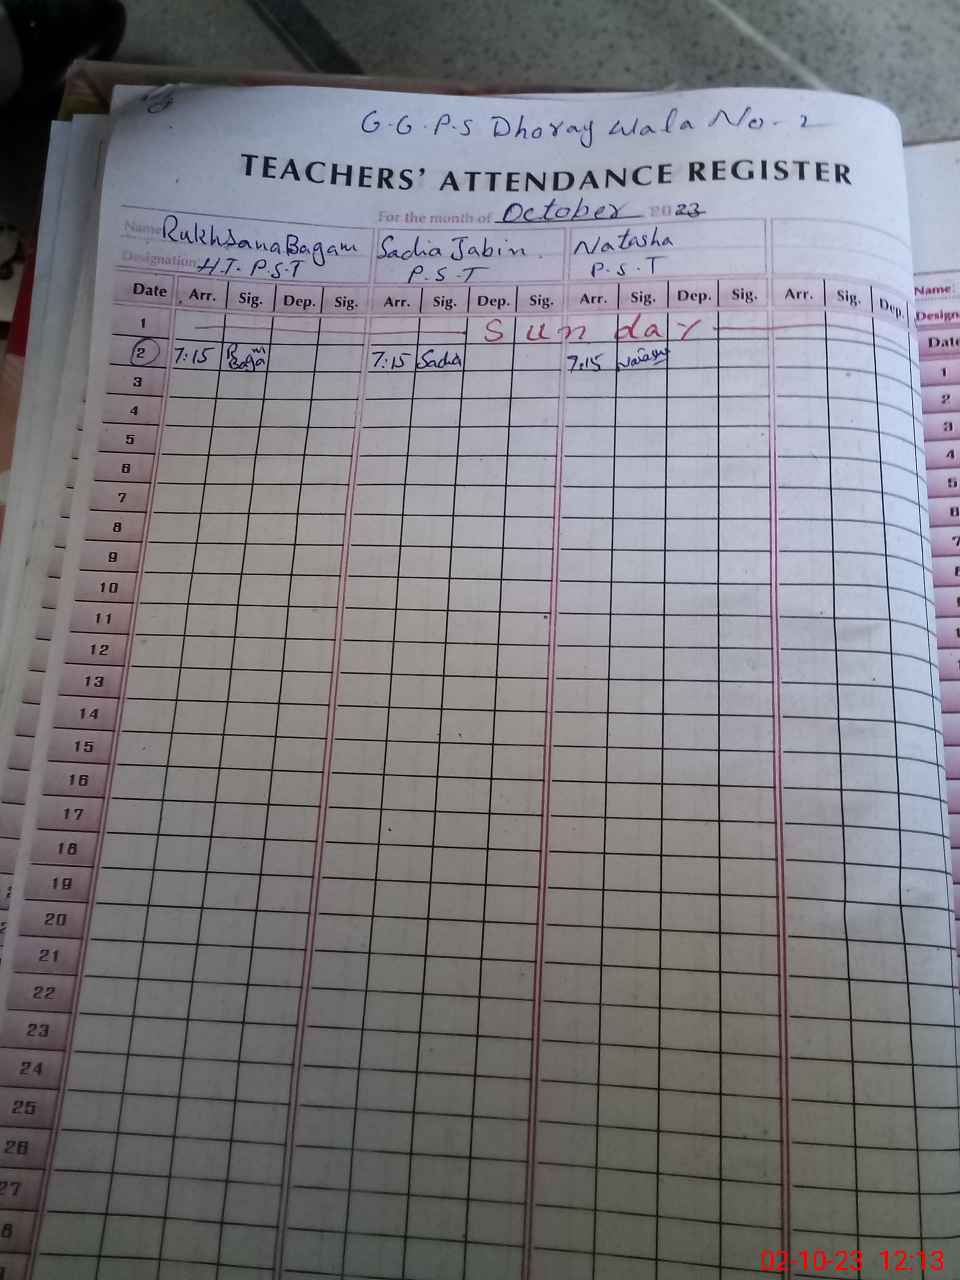 G.G.P.S Dhoray Wala No-2
TEACHERS' ATTENDANCE REGISTER
For the month of October 2023
Name Rukhsana Bagam Sadia Jabin. Natasha
Designation H.T. P.S.T P.S.T P.S.T
Date Arr. Sig. Dep. Sig. Arr. Sig. Dep. Sig. Arr. Sig. Dep. Sig. Arr. Sig. Dep.
1 Sunday
2 7:15 7:15 Sadia 7:15
3
4
5
6
7
8
9
10
11
12
13
14
15
16
17
18
19
20
21
22
23
24
25
26
27
8
Name:
Design
Date
1
2
3
4
5
6
7
02-10-23 12:13